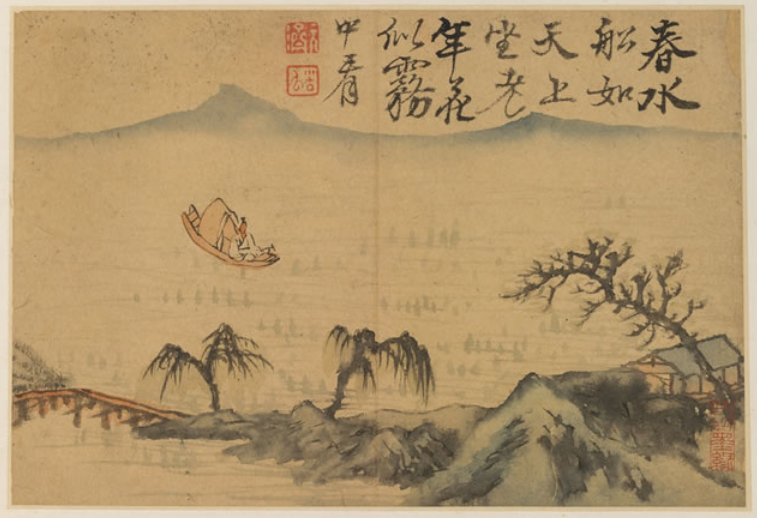 春水
船如
天上
坐老
年花
似霧
中看